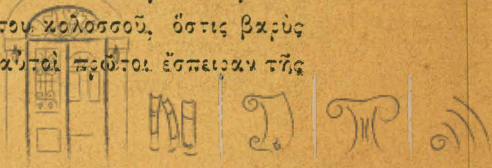 του κολοσσοῦ, ὅστις βαρὺς
αὐταὶ πρῶται ἔσπειραν τῆς